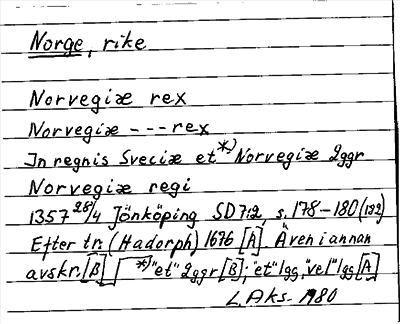 Norge, rike
Norvegiæ rex
Norvegiæ --- rex
In regnis Sveciæ et *) Norvegiæ 2ggr
Norvegiæ regi
1357 28/4 Jönköping SD 7:2, s. 178-180 (192)
Efter tr. (Hadorph) 1676 [A]. Även i annan
avskr. [B] *) "et" 2ggr [B]; "et" 1gg, "vel" 1gg [A]
L. Aks. 1980